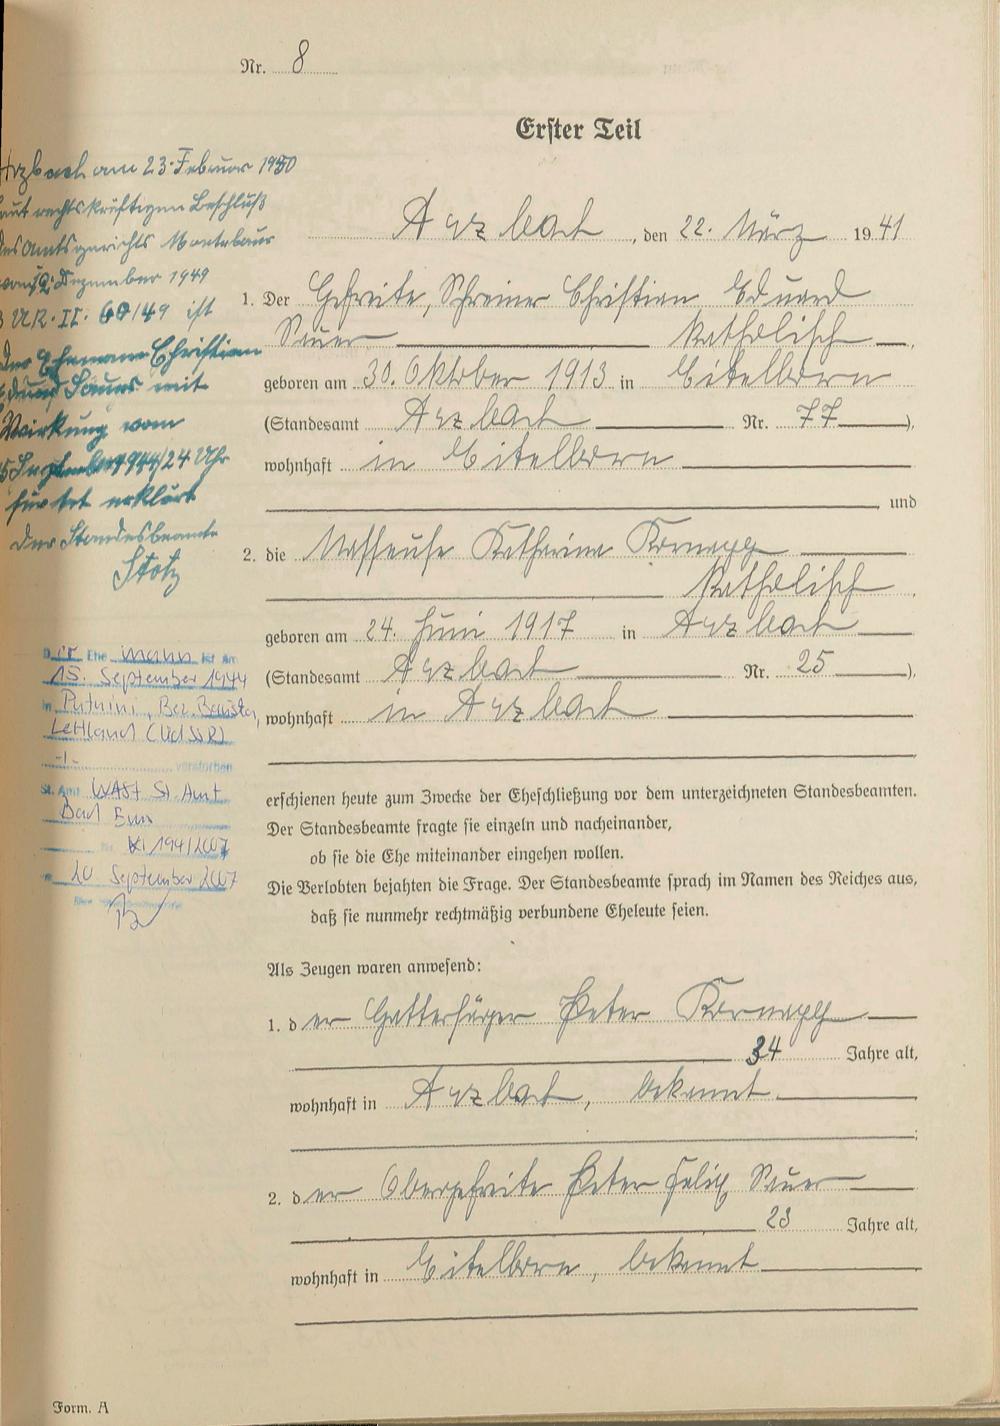 Nr. 8
Erster Teil
Arzbach, den 22. März 1941
1. Der Gefreite, Schreiner Christian Eduard
Sauer katholisch,
geboren am 30. Oktober 1913 in Eitelborn
(Standesamt Arzbach Nr. 77),
wohnhaft in Eitelborn
, und
2. die Katharina
katholisch,
geboren am 24. Juni 1917 in Arzbach
(Standesamt Arzbach Nr. 25),
wohnhaft in Arzbach
erschienen heute zum Zwecke der Eheschließung vor dem unterzeichneten Standesbeamten.
Der Standesbeamte fragte sie einzeln und nacheinander,
ob sie die Ehe miteinander eingehen wollen.
Die Verlobten bejahten die Frage. Der Standesbeamte sprach im Namen des Reiches aus,
daß sie nunmehr rechtmäßig verbundene Eheleute seien.
Als Zeugen waren anwesend:
1. der Peter
34 Jahre alt,
wohnhaft in Arzbach, bekannt
;
2. der Obergefreite Peter Felix Sauer
23 Jahre alt,
wohnhaft in Eitelborn, bekannt
Form. A
Arzbach am 23. Februar 1950
laut rechtskräftigen Beschluß
des Amtsgerichts Montabaur
vom Dezember 1949
UR. II. /49 ist
der Ehemann Christian
Eduard Sauer mit
Wirkung vom
15 September 1944/24 Uhr
für tot erklärt
Der Standesbeamte
Stotz
Der Ehemann ist am
15. September 1944
in Putnini, Bez. Bauska,
Lettland (UdSSR)
-/- verstorben
St. Amt WASt St. Amt
Bad Ems
Nr. XI 194/2007
20 September 2007